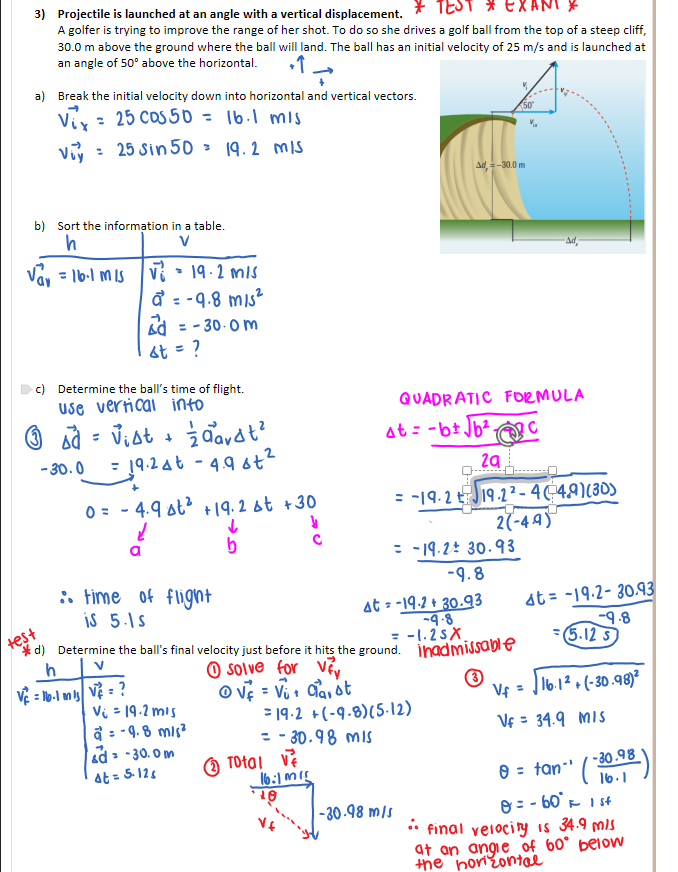 * TEST * EXAM *
3) Projectile is launched at an angle with a vertical displacement.
A golfer is trying to improve the range of her shot. To do so she drives a golf ball from the top of a steep cliff,
30.0 m above the ground where the ball will land. The ball has an initial velocity of 25 m/s and is launched at
an angle of 50° above the horizontal.
+↑ →
+
a) Break the initial velocity down into horizontal and vertical vectors.
Vix = 25 cos50 = 16.1 m/s
Viy = 25 sin50 = 19.2 m/s
50°
Δd = -30.0 m
Δd
b) Sort the information in a table.
h V
Vav = 16.1 m/s
Vi = 19.2 m/s
a = -9.8 m/s²
Δd = -30.0m
Δt = ?
c) Determine the ball's time of flight.
use vertical info
③ Δd = ViΔt + 1/2 aavΔt²
-30.0 = 19.2Δt - 4.9Δt²
0 = -4.9Δt² + 19.2Δt + 30
a b c
∴ time of flight
is 5.1s
QUADRATIC FORMULA
Δt = -b±√b² C
2a
= -19.2 ± √19.2² - 4(-4.9)(30)
2(-4.9)
= -19.2 ± 30.93
-9.8
Δt = -19.2 + 30.93
-9.8
= -1.2s X
inadmissable
Δt = -19.2 - 30.93
-9.8
= 5.12 s
test
* d) Determine the ball's final velocity just before it hits the ground.
h V
Vf = 16.1 m/s
Vf = ?
Vi = 19.2 m/s
a = -9.8 m/s²
Δd = -30.0m
Δt = 5.12s
① solve for Vfy
① Vf = Vi + aavΔt
= 19.2 + (-9.8)(5.12)
= -30.98 m/s
② Total Vf
16.1 m/s
θ
-30.98 m/s
Vf
③
Vf = √16.1² + (-30.98)²
Vf = 34.9 m/s
θ = tan⁻¹ (-30.98/16.1)
θ = -60°
∴ final velocity is 34.9 m/s
at an angle of 60° below
the horizontal